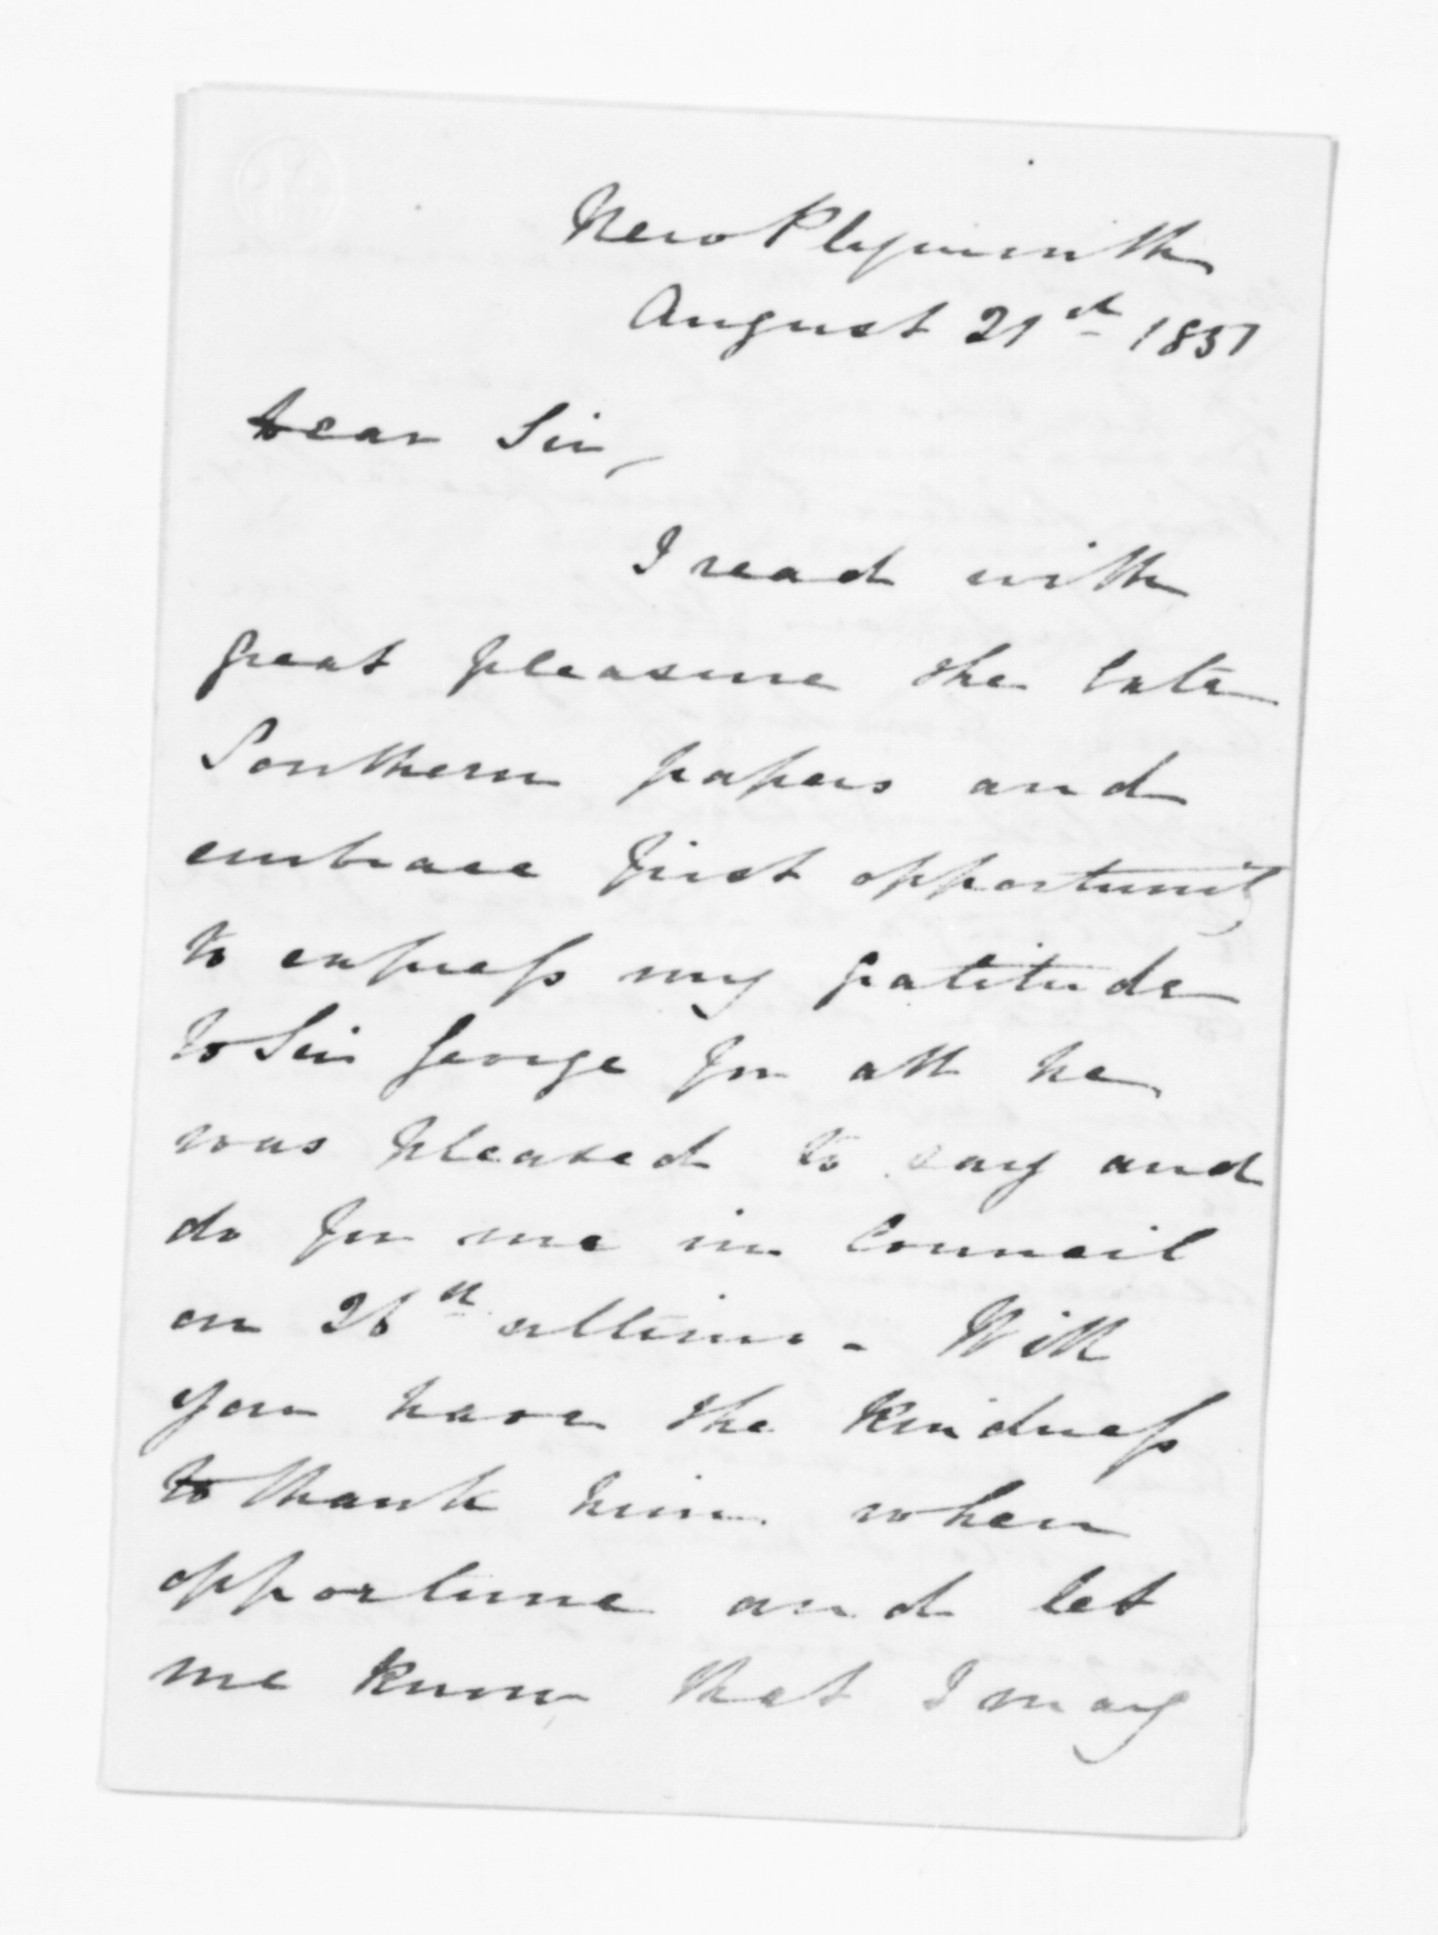 New Plymouth
August 21st 1851
Dear Sir,
I read with
great pleasure the late
Southern papers and
embrace first opportunity
to express my gratitude
to Sir George for all he
was pleased to say and
do for me in Council
on 26th ultimo. Will
you have the kindness
to thank him when
opportune and let
me know that I may